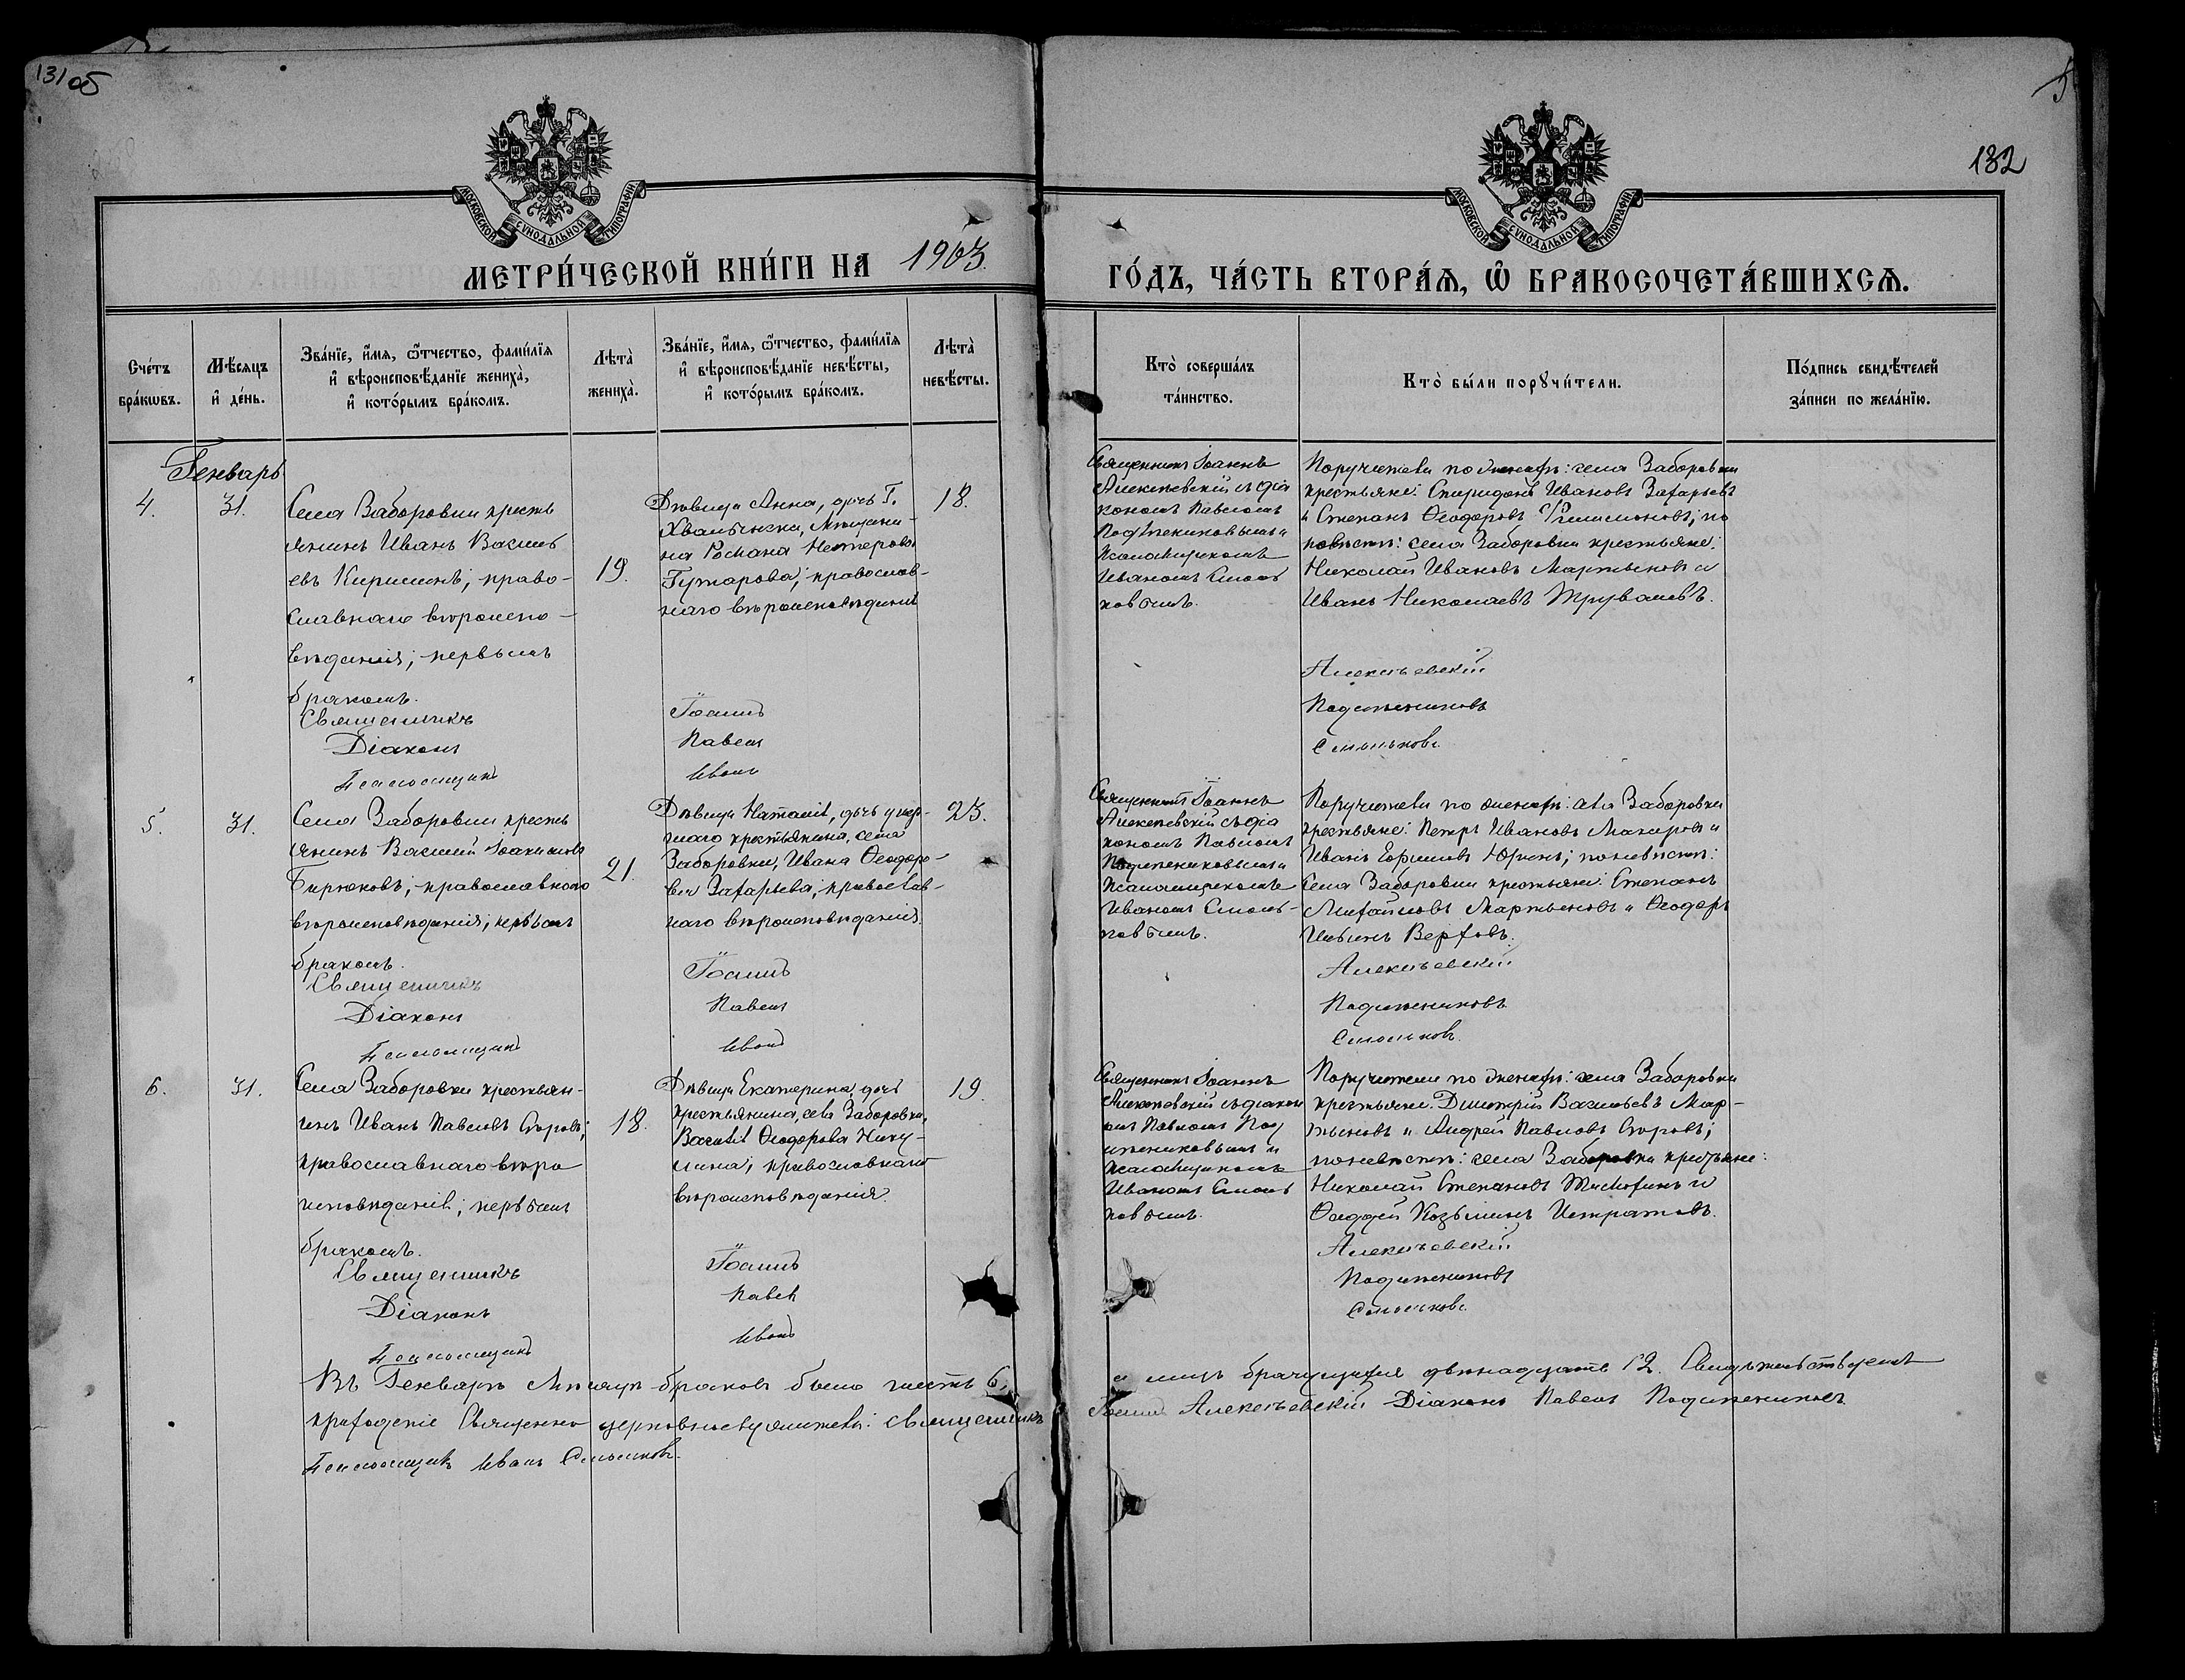 131об
132
МОСКОВСКОЙ СѴНОДАЛЬНОЙ ТИПОГРАФІИ
МОСКОВСКОЙ СѴНОДАЛЬНОЙ ТИПОГРАФІИ
МЕТРИ́ЧЕСКОЙ КНИ́ГИ НА 1903
ГО́ДЪ, ЧА́СТЬ ВТОРА́Ѧ, Ѡ҆ БРАКОСОЧЕТА́ВШИХСѦ.
Сче́тъ
бра́кѡвъ.
Мѣ́сяцъ
и҆ де́нь.
Зва́нїе, и҆́мя, ѻ҆́тчество, фами́лїя
и҆ вѣроисповѣ́данїе жениха̀,
и҆ кото́рымъ бра́комъ.
Лѣта̀
жениха̀.
Зва́нїе, и҆́мя, ѻ҆́тчество, фами́лїя
и҆ вѣроисповѣ́данїе невѣ́сты,
и҆ кото́рымъ бра́комъ.
Лѣта̀
невѣ́сты.
Кто̀ соверша́лъ
та́инство.
Кто̀ бы́ли порꙋчи́тели.
По́дпись свидѣ́телей
за́писи по жела́нїю.
Генварь
4.
31.
Села Заборовки кресть
янинъ Иванъ Василь
евъ Кирилинъ; право-
славнаго вѣроиспо-
вѣданія; первымъ
бракомъ.
19.
Дѣвица Анна, дочь Г.
Хвалынска, Мѣщани-
на Романа Нестерова
Гутарова; православ-
наго вѣроисповѣданія
18.
Священникъ Іоаннъ
Алексѣевскій съ діа
кономъ Павломъ
Подъпениковымъ и
Псаломщикомъ
Иваномъ Смоль
ковымъ.
Поручители по женихѣ: села Заборовки
крестьяне: Спиридонъ Ивановъ Захарьевъ
и Степанъ Ѳеодоровъ Филимоновъ; по
невѣстѣ: села Заборовки крестьяне:
Николай Ивановъ Мартыновъ и
Иванъ Николаевъ Труваевъ.
Священникъ Іоаннъ Алексѣевскій
Діаконъ Павелъ Подъпениковъ
Псаломщикъ Иванъ Смольковъ
5.
31.
Села Заборовки кресть
янинъ Василій Іоакимовъ
Бирюковъ; православнаго
вѣроисповѣданія; первымъ
бракомъ.
21.
Дѣвица Наталія, дочь умер-
шаго крестьянина, села
Заборовки, Ивана Ѳеодоро-
ва Захарьева; православ-
наго вѣроисповѣданія.
23.
Священникъ Іоаннъ
Алексѣевскій съ діа
кономъ Павломъ
Подъпениковымъ и
Псаломщикомъ
Иваномъ Смоль-
ковымъ.
Поручители по женихѣ: села Заборовки
крестьяне: Петръ Ивановъ Макаровъ и
Иванъ Ефимовъ Юринъ; по невѣстѣ:
Села Заборовки крестьяне: Степанъ
Михайловъ Мартыновъ и Ѳеодоръ
Верховъ.
Священникъ Іоаннъ Алексѣевскій
Діаконъ Павелъ Подъпениковъ
Псаломщикъ Иванъ Смольковъ
6.
31.
Села Заборовки крестьян-
инъ Иванъ Павловъ Сыровъ;
православнаго вѣро
исповѣданія; первымъ
бракомъ.
18.
Дѣвица Екатерина, дочь
крестьянина, села Заборовки,
Василія Ѳеодорова Нику-
лина; православнаго
вѣроисповѣданія.
19.
Священникъ Іоаннъ
Алексѣевскій съ діакон
омъ Павломъ Подъ
пениковымъ и
Псаломщикомъ
Иваномъ Смоль
ковымъ.
Поручители по женихѣ: села Заборовки
крестьяне: Дмитрій Васильевъ Мар-
тыновъ и Андрей Павловъ Сыровъ;
по невѣстѣ: села Заборовки крестьяне:
Николай Степановъ Тимофинъ и
Фаддей Козьминъ Истратовъ.
Священникъ Іоаннъ Алексѣевскій
Діаконъ Павелъ Подъпениковъ
Псаломщикъ Иванъ Смольковъ
Въ Генварѣ Мѣсяцѣ браковъ было шесть 6, а лицъ брачущихся двѣнадцать 12. Свидѣтельствуемъ
приходскіе Священно церковнослужители: Священникъ Іоаннъ Алексѣевскій Діаконъ Павелъ Подъпениковъ
Псаломщикъ Иванъ Смольковъ.